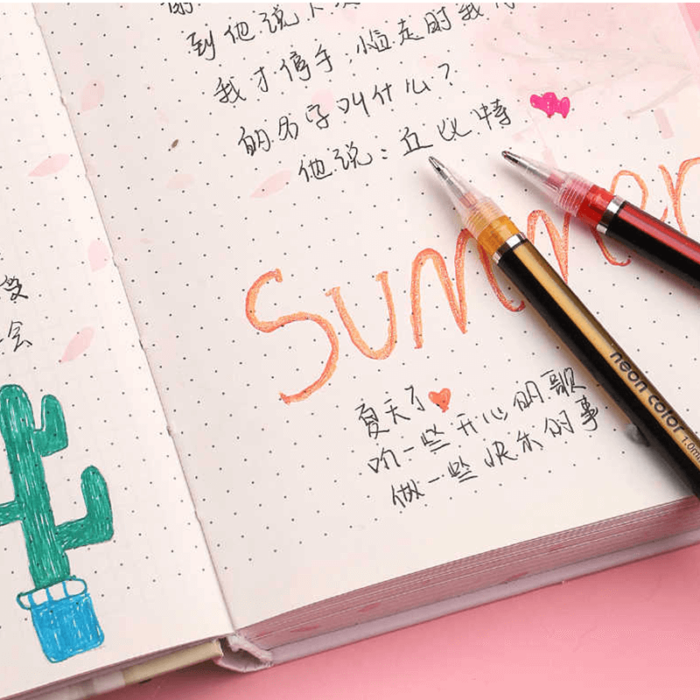 受
会
到他说
我才停手,临走时我
的名字叫什么?
他说:丘比特
Summer
夏天了
听一些开心的歌
做一些快乐的事
neon color 1.0mm